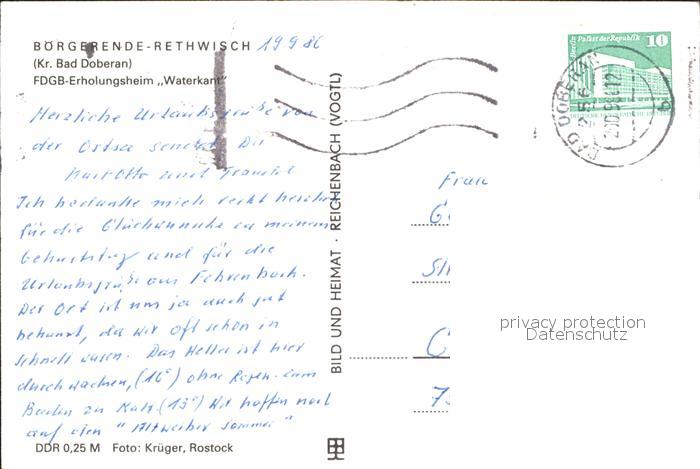 BÖRGERENDE-RETHWISCH 19 9 86
(Kr. Bad Doberan)
FDGB-Erholungsheim „Waterkant"
Herzliche Urlaubsgrüße von
der Ostsee senden Dir
Karl Otto und
Ich bedanke mich recht herzlich
für die Glückwünsche zu meinem
Geburtstag und für die
Urlaubsgrüße aus Fehrenbach.
Der Ort ist uns ja auch gut
bekannt, da wir oft schon in
Schnett waren. Das Wetter ist hier
durchwachsen, (16°) ohne Regen. Zum
Baden zu kalt (13°) Wir hoffen noch
auf den "Altweiber Sommer"
DDR 0,25 M Foto: Krüger, Rostock
BILD UND HEIMAT · REICHENBACH (VOGTL)
Berlin Palast der Republik
10
BAD DOBERAN
Frau
privacy protection
Datenschutz